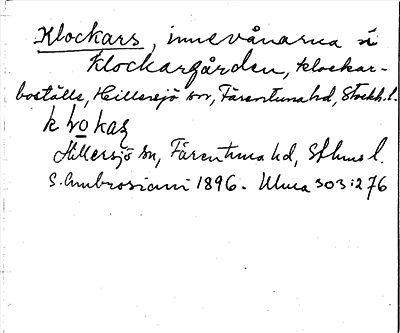 Klockars, innevånarna i
Klockargården, klockar-
boställe, Hillersjö sn, Färentuna hd, Stockh. l.
klokaṣ
Hillersjö sn, Färentuna hd, Sthms l.
S. Ambrosiani 1896. Ulma 303:276